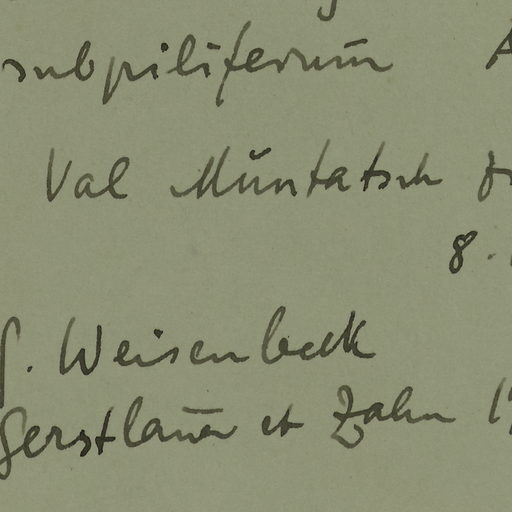 subpiliferum A
Val Muntatsch
8.
G. Weisenbeck
Gerstlauer et Zahn 1